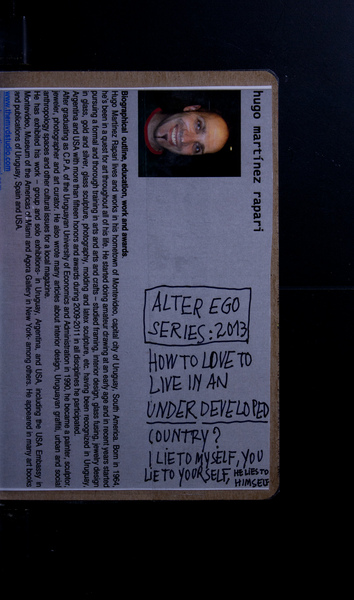 hugo martínez rapari
ALTER EGO
SERIES: 2013
HOW TO LOVE TO
LIVE IN AN
UNDER DEVELOPED
COUNTRY?
I LIE TO MYSELF, YOU
LIE TO YOURSELF, HE LIES TO
HIMSELF
Biographical outline, education, work and awards.
Hugo Martínez Rapari lives and works in his hometown of Montevideo, capital city of Uruguay, South America. Born in 1964,
he's been in a quest for art throughout all of his life. He started doing amateur drawing at an early age and in recent years started
pursuing a formal and thorough training in arts and crafts – studied framing, interior design, glass fusing, jewelry design
in glass, gold and silver, glass sculpture, photography, molding and latex sculpture, etc. having been recognized in Uruguay,
Argentina and USA with more than fifteen honors and awards during 2009-2011 in all disciplines he participated.
After graduating as C.P.A. of the Uruguayan University of Economics and Administration in 1990, he became a painter, sculptor,
jeweler, photographer and art curator. He also wrote many articles about interior design, Uruguayan graffiti, urban and social
anthropology spaces and other cultural issues for a local magazine.
He has exhibited his work – group and solo exhibitions- in Uruguay, Argentina, and USA, including the USA Embassy in
Montevideo, Museum of the Americas of Miami and Agora Gallery in New York- among others. He appeared in many art books
and publications of Uruguay, Spain and USA.